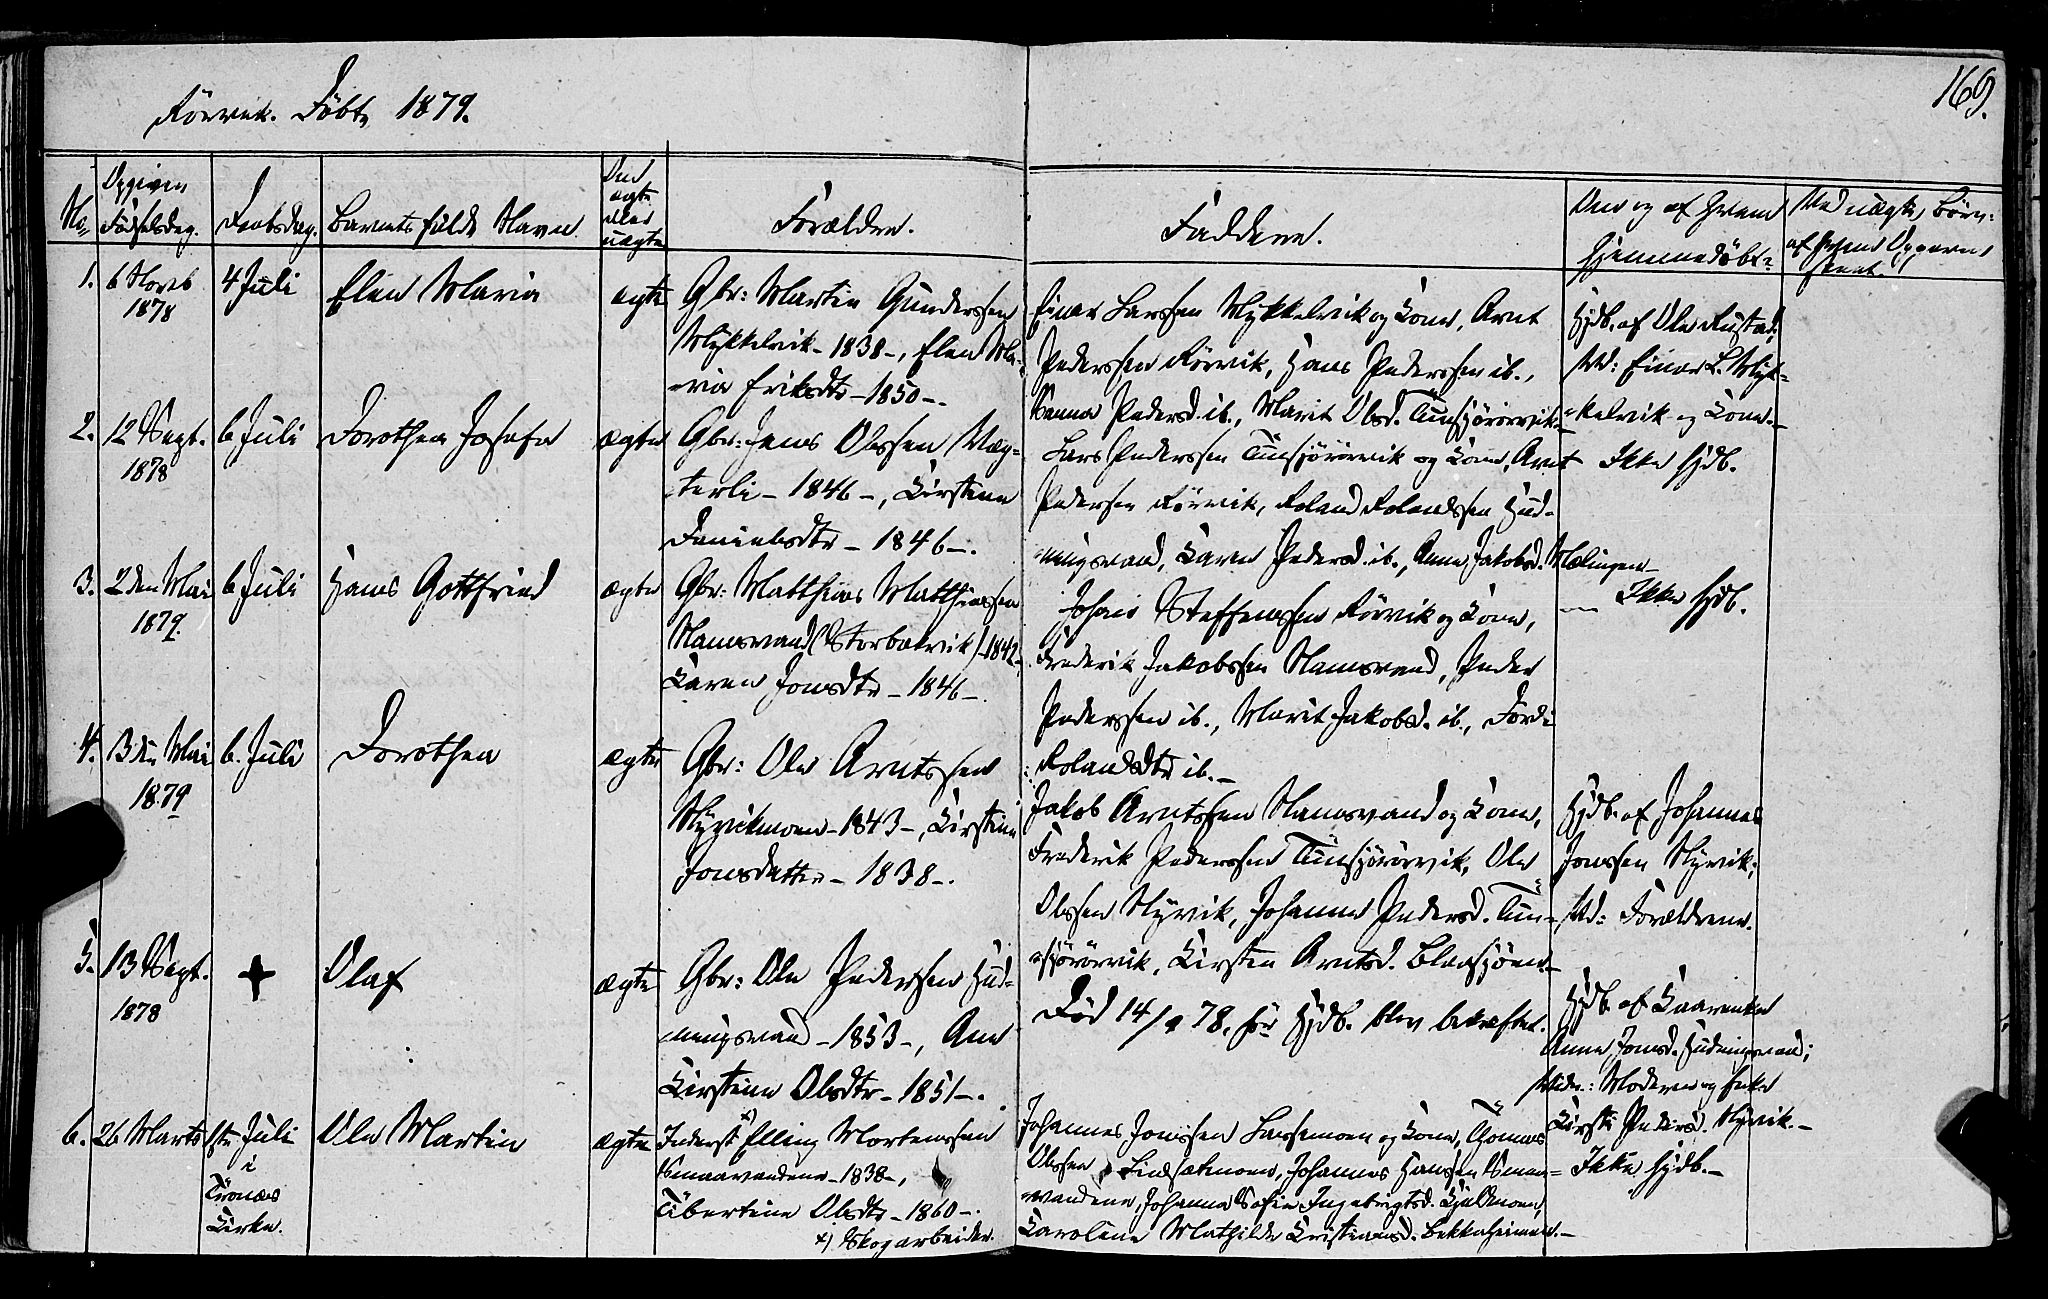 Rörvik. Døbte 1879.
169.
No
Opgiven Fødselsdag.
Daabsdag.
Barnets fulde Navn
Om ægte eller uægte
Forældre.
Faddere.
Om og af hvem hjemmedöbt
Ved uægte Börn: af hvems
1. 6 Novb 1878
4 Juli
Elen Maria
ægte
Gbr: Martin Gunderssen
Mykkelvik - 1838 -, Elen Ma-
ria Eriksdtr - 1850 -.
Einar Larssen Mykkelvik og Kone, Arnt
Pederssen Rörvik, Hans Pederssen ib.,
Pedersd. ib., Marit Olsd. Tunsjörörvik
Hjdb. af Ole Rustad;
Vid: Einar L. Myk-
kelvik og Kone.
2. 12 Sept. 1878
6 Juli
Dorothea Josefa
ægte
Gbr: Jens Olssen Væg-
terli - 1846 -, Kirstine
Danielsdtr - 1846 -.
Lars Pederssen Tunsjörörvik og Kone, Arnt
Pedersen Rörvik, Roland Rolandssen Hud-
ningsvand, Karen Pedersd. ib., Anne Jakobsd. Mælingen
Ikke hjdb.
3. 2den Mai 1879.
6 Juli
Hans Gottfried
ægte
Gbr: Matthias Matthiassen
Namsvand (Storbækvik) - 1842 -
Karen Jonsdtr - 1846 -
Johan Steffenssen Rörvik og Kone,
Frederik Jakobssen Namsvand, Peder
Pederssen ib., Marit Jakobsd. ib.,
Rolandsdtr ib. -
Ikke hjdb.
4. 13de Mai 1879
6. Juli
Dorothea
ægte
Gbr: Ole Arntssen
Nyvikmoen - 1843 -, Kirstine
Jonsdatter - 1838 -.
Jakob Arntssen Namsvand og Kone,
Frederik Pederssen Tunsjörörvik, Ole
Olssen Nyvik, Johanna Pedersd. Tun-
sjörörvik, Kirsten Arntsd.
Hjdb. af Johannes
Jonssen Nyvik;
Vid: Forældrene.
5. 13 Sept. 1878
+
Olaf
ægte
Gbr: Ole Pederssen Hud-
ningsvand - 1853 -, Ane
Kirstine Olsdtr - 1851 -.
Död 14/9 78, för Hjdb. blev bekræftet.
Hjdb. af
Anne Jonsd. Hudningsvand;
Vidn.: Moderen og Enke
Kirsti Pedersd. Nyvik. -
6. 26 Marts
1ste Juli
i
Trones
Kirke.
Ole Martin
ægte
Inderst x) Elling Mortenssen
Smaavandene - 1838 -,
Tibertine Olsdtr - 1860 -.
x) Skogarbeider.
Johannes Jonssen Lassemoen og Kone, Tomas
Olssen Lindsætmoen, Johannes Hanssen Smaa-
vandene, Johanna Sofie Ingebrigtsd. Kjelmoen,
Karoline Mathilde Kristiansd. Bekkeheimen. -
Ikke hjdb. -